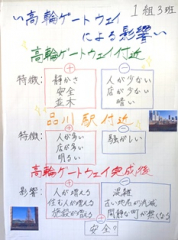 1組3班
"高輪ゲートウェイ
による影響"
高輪ゲートウェイ付近
特徴:
⊕
静かさ
安全
並木
⊖
人が少ない
店が少ない
暗い
品川駅付近
特徴:
⊕
人が多い
店が多い
明るい
⊖
騒がしい
高輪ゲートウェイ完成後
影響:
⊕
人が増える
住む人が増える
施設が増える
⊖
混雑
閑静な町が無くなる
安全?